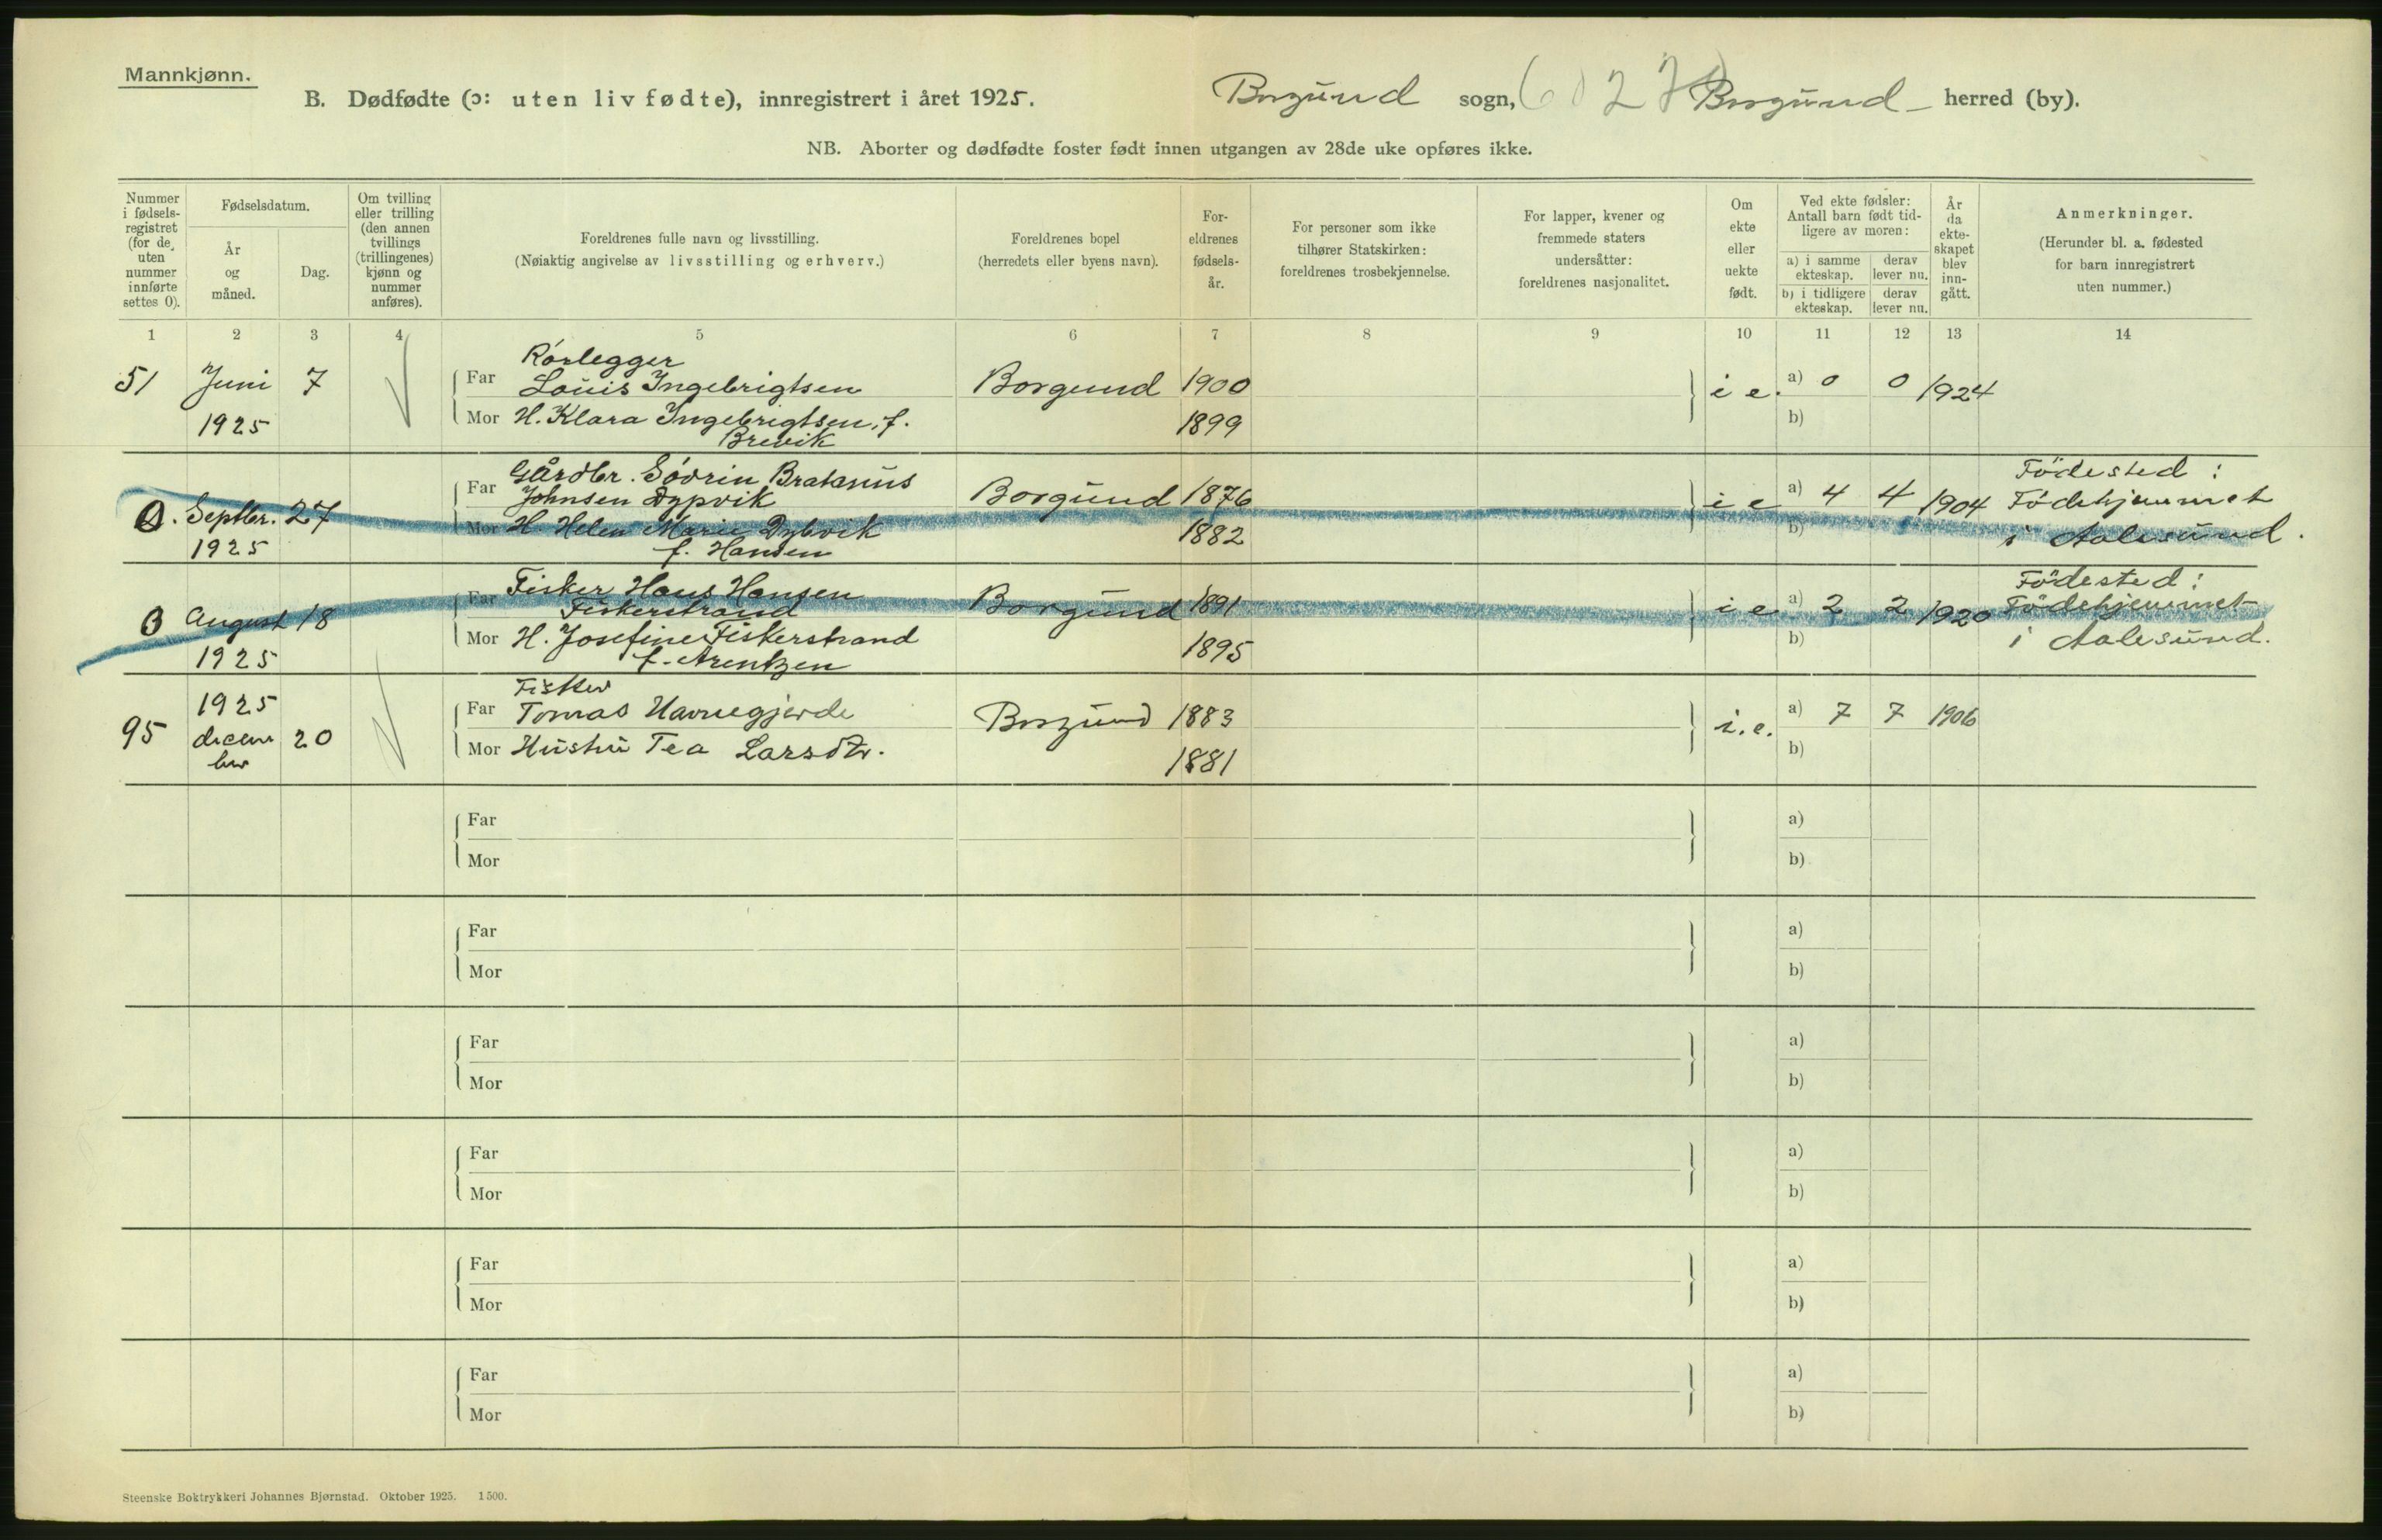 Mannkjønn.
B. Dødfødte (ɔ: uten liv fødte), innregistrert i året 1925.
Borgund sogn, Borgund herred (by).
NB. Aborter og dødfødte foster født innen utgangen av 28de uke opføres ikke.
Nummer i fødsels-registret (for de uten nummer innførte settes 0).
Fødselsdatum.
År og måned.
Dag.
Om tvilling eller trilling (den annen tvillings (trillingenes) kjønn og nummer anføres).
Foreldrenes fulle navn og livsstilling.
(Nøiaktig angivelse av livsstilling og erhverv.)
Foreldrenes bopel
(herredets eller byens navn).
For-eldrenes fødsels-år.
For personer som ikke tilhører Statskirken: foreldrenes trosbekjennelse.
For lapper, kvener og fremmede staters undersåtter: foreldrenes nasjonalitet.
Om ekte eller uekte født.
Ved ekte fødsler: Antall barn født tid-ligere av moren:
a) i samme ekteskap.
derav lever nu.
b) i tidligere ekteskap.
derav lever nu.
År da ekte-skapet blev inn-gått.
Anmerkninger.
(Herunder bl. a. fødested for barn innregistrert uten nummer.)
1 2 3 4 5 6 7 8 9 10 11 12 13 14
Rörlegger
51 Juni 7 Far Louis Ingebrigtsen Borgund 1900 i e. a) 0 0 1924
1925 Mor H. Klara Ingebrigtsen, f. 1899 b)
Brevik
Gårdbr. Sövrin Bratanus Födested:
0. Septbr. 27 Far Johnsen Dypvik Borgund 1876 i e a) 4 4 1904 Födehjemmet
1925 Mor H. Helen Marie Dybvik 1882 b) i Aalesund.
f. Hansen
Fisker Hans Hansen Födested:
0 August 18 Far Fiskerstrand Borgund 1891 i e. a) 2 2 1920 Födehjemmet
1925 Mor H. Josefine Fiskerstrand 1895 b) i Aalesund.
f. Arentzen
Fisker
95 1925 decem ber 20 Far Tomas Havnegjerde Borgund 1883 i. e. a) 7 7 1906
Mor Hustru Tea Larsdtr. 1881 b)
Far a)
Mor b)
Far a)
Mor b)
Far a)
Mor b)
Far a)
Mor b)
Far a)
Mor b)
Far a)
Mor b)
Steenske Boktrykkeri Johannes Bjørnstad. Oktober 1925. 1500.